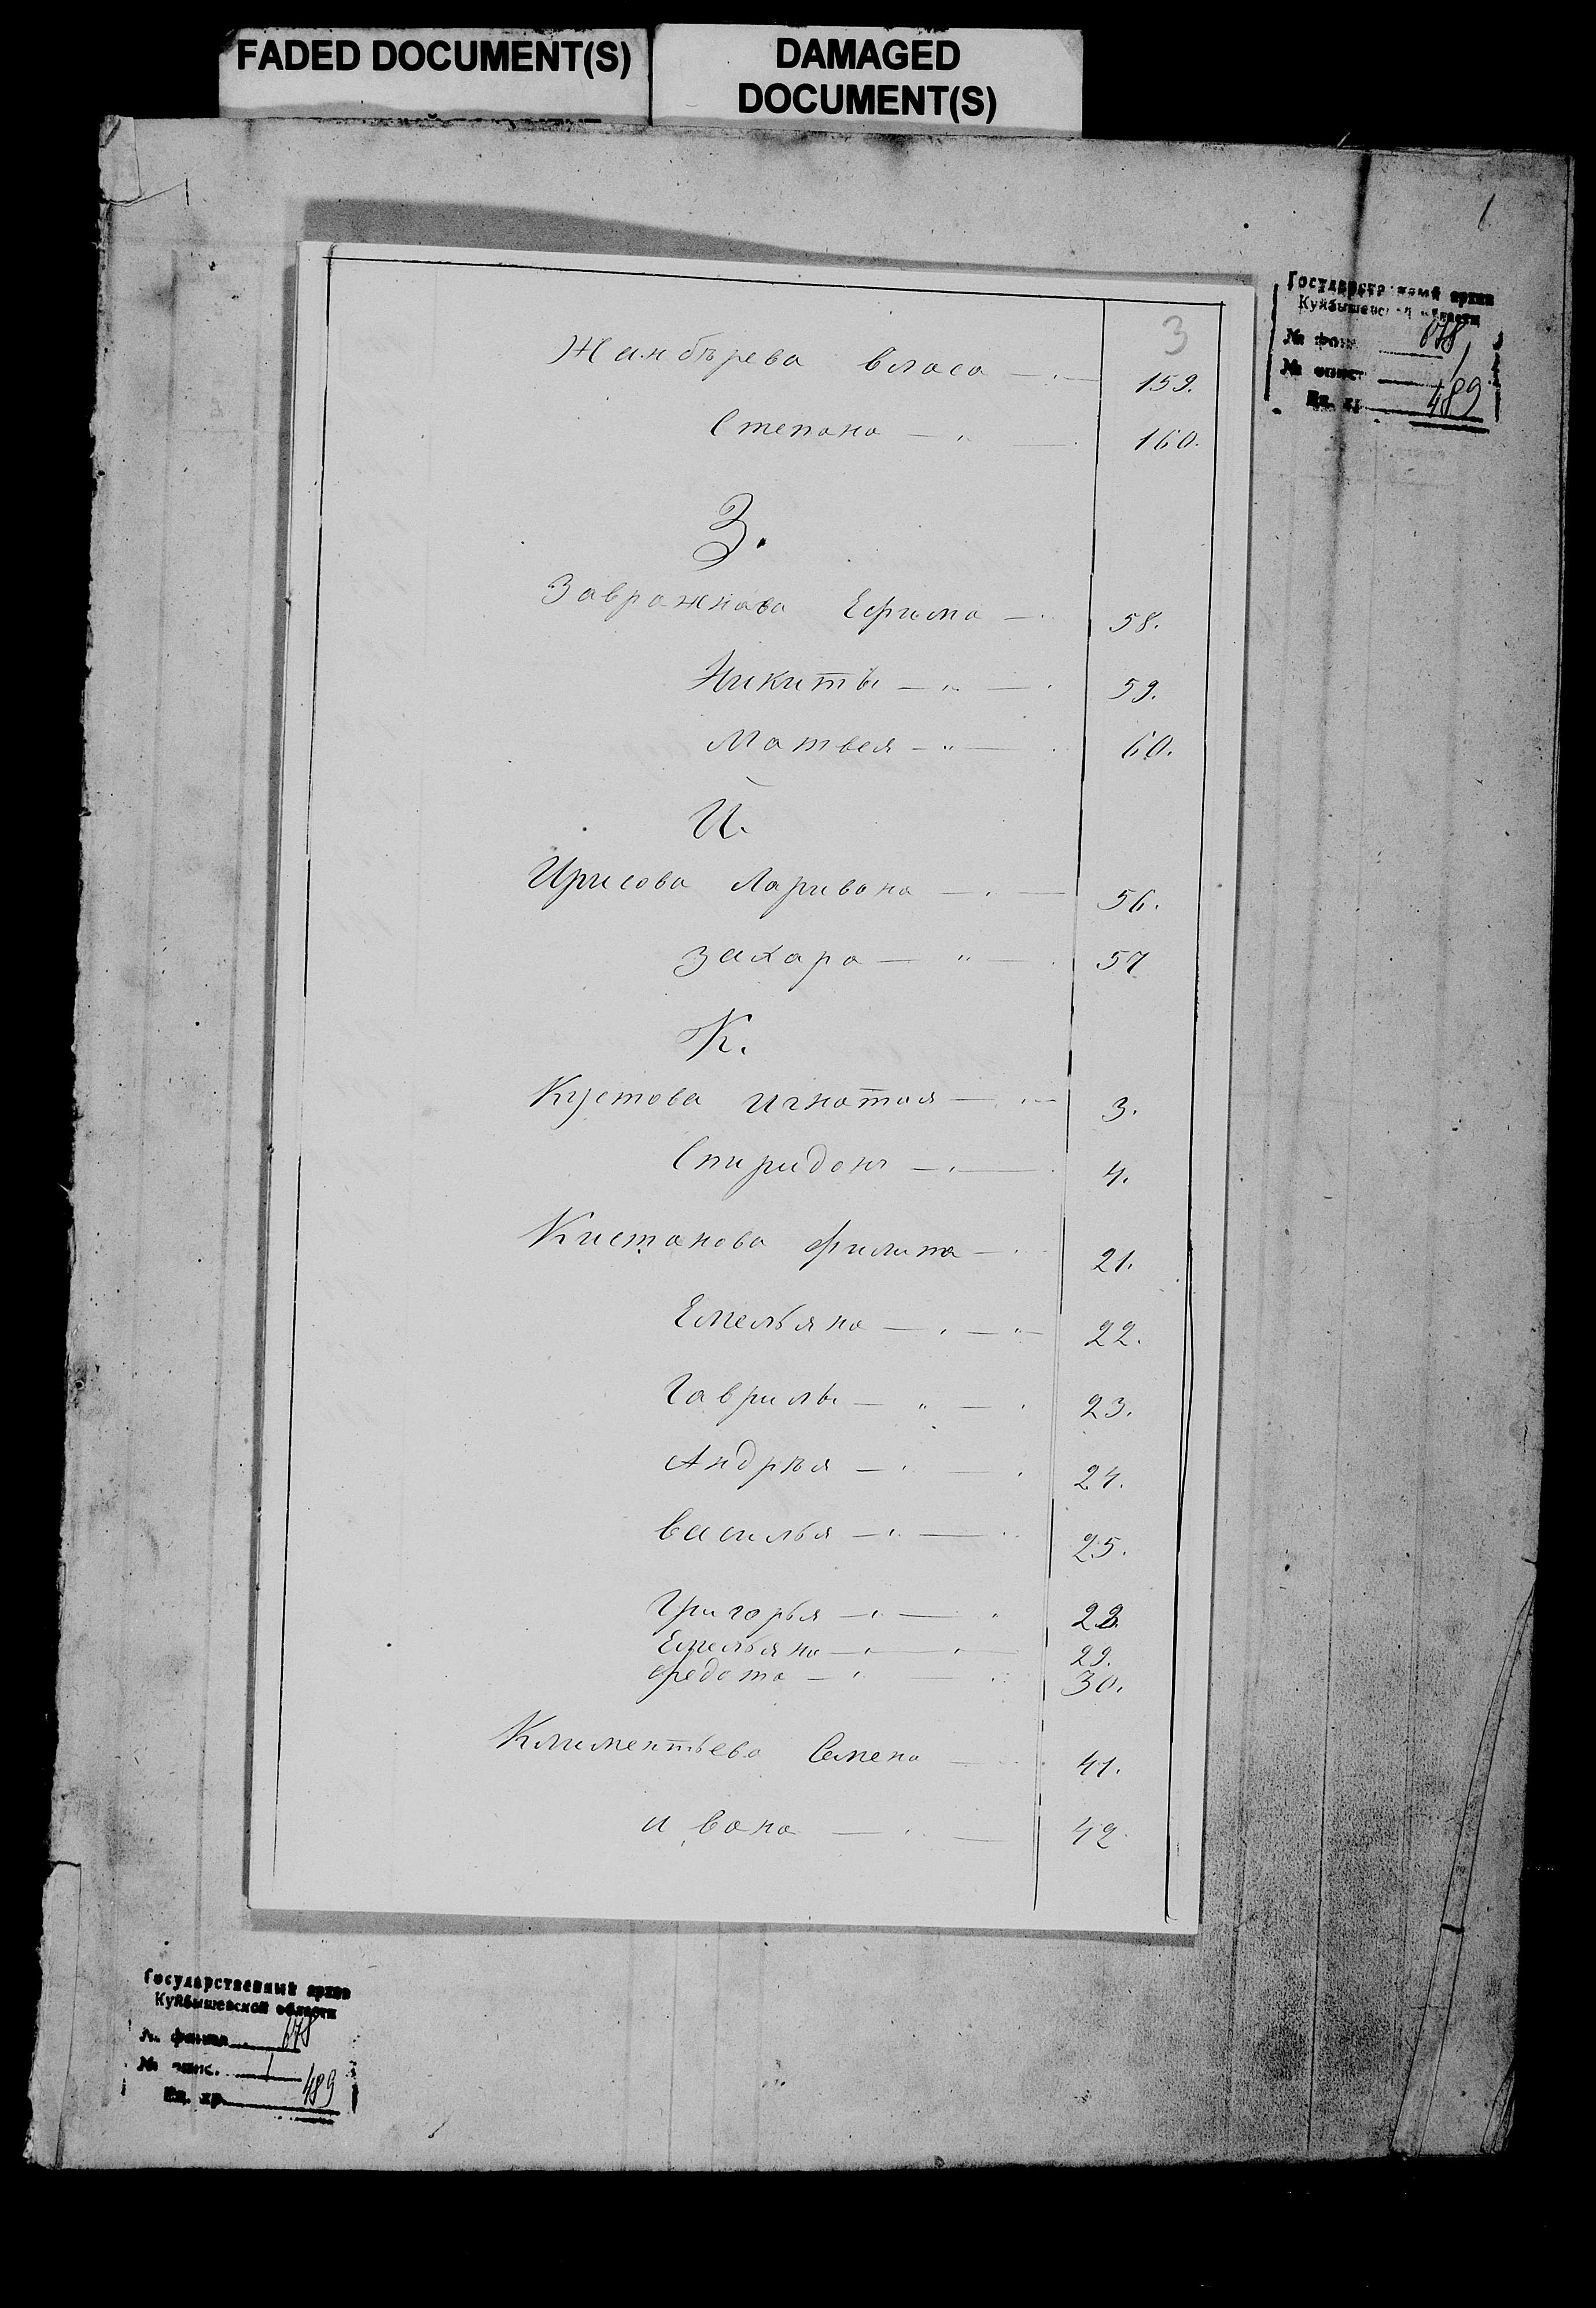 FADED DOCUMENT(S)
DAMAGED
DOCUMENT(S)
1
3
Государственный архив
Куйбышевской области
№ фон. 678
№ опис. 1
Ед. хр. 489
Жанбѣрева Власа — 159.
Степана — 160.
З.
Завражнава Ефима — 58.
Никиты — " — 59.
Матвея — " — 60.
И.
Ирисова Ларивана — 56.
Захара — " — 57
К.
Кустова Игнатия — 3.
Спиридона — 4.
Кистанова Филипа — 21.
Емельяна — 22.
Гаврилы — " — 23.
Андрѣя — 24.
Василья — 25.
Григорья — 28.
Емельяна — 29.
Федота — 30.
Климентьева Семена — 41.
Ивана — 42.
Государственный архив
Куйбышевской области
№ фонда 678
№ опис. 1
Ед. хр. 489